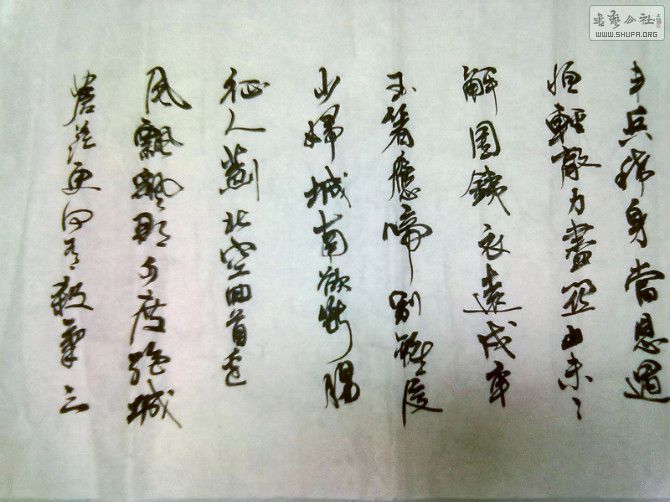 斗兵稀身當恩遇
恒輕敵力盡關山未
解圍鐵衣遠戍辛
玉箸應啼別離後
少婦城南欲斷腸
征人薊北空回首邊
風飄飄那可度絕域
蒼茫更何有殺氣三
書藝公社
WWW.SHUFA.ORG